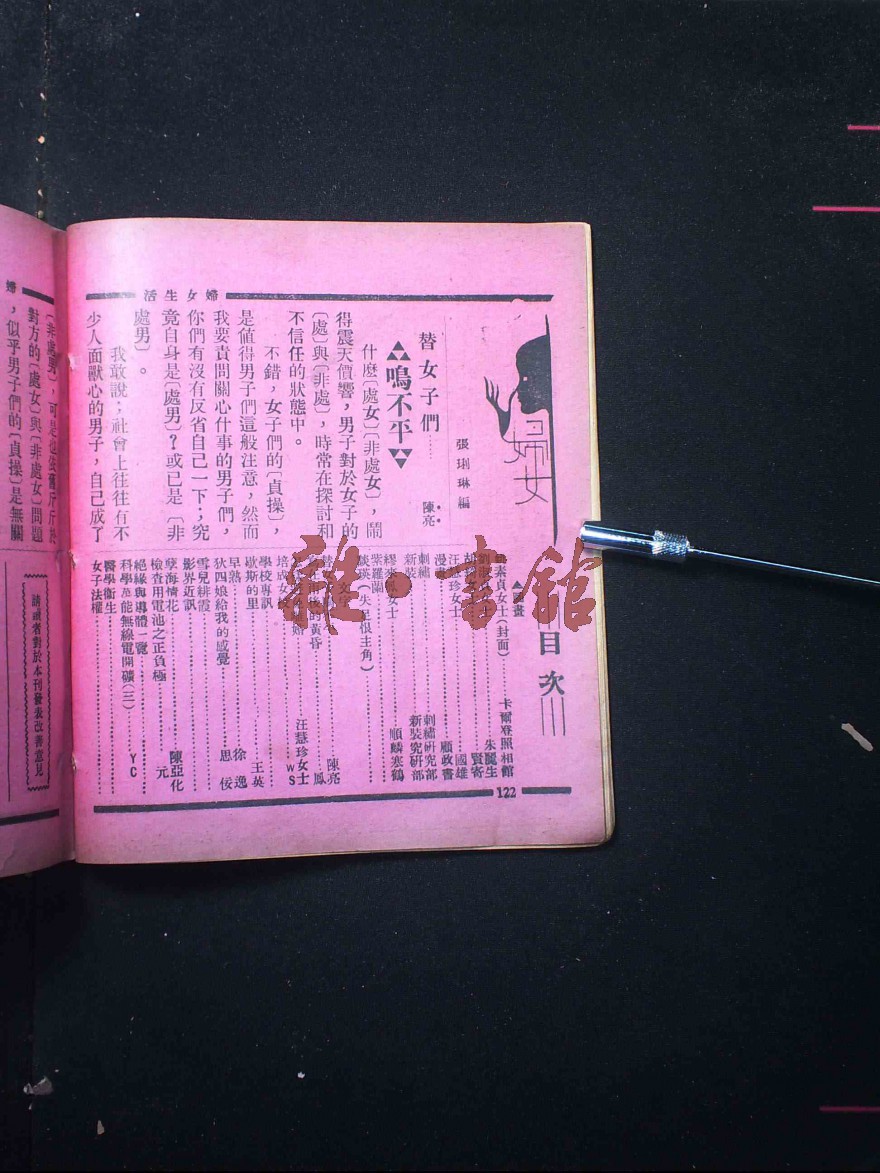 婦女生活
婦女
張琍琳編
替女子們……
鳴不平
陳亮
什麽〔處女〕〔非處女〕，鬧
得震天價響，男子對於女子的
〔處〕與〔非處〕，時常在探討和
不信任的狀態中。
不錯，女子們的〔貞操〕，
是値得男子們這般注意，然而
我要責問關心什事的男子們，
你們有沒有反省自己一下；究
竟自身是〔處男〕？或已是〔非
處男〕。
我敢說；社會上往往有不
少人面獸心的男子，自己成了
目次
圖畫
素貞女士（封面）……卡爾登照相館
朱麗生
賢寄
汪慧珍女士……國雄
漫畫……顧政書
刺繡……刺繡研究部
新裝……新裝究研部
女士……順麟
紫羅蘭……寒鶴
談英（失足恨主角）
文字
陳亮
雨後的黃昏……鳳
汪慧珍女士
培成女校……WS
學校專訊
歇斯的里……王英
早熟……徐逸
狄四娘給我的感覺……思佞
雪兒緋霞
影界近訊
孽海情花……陳亞化
檢查用電池之正負極……元
絕緣與導體一覽
科學萬能無線電開礦（三）……YC
醫學衞生
女子法權
122
婦
〔非處男〕，可是也依舊斤斤於
對方的〔處女〕與〔非處女〕問題
，似乎男子們的〔貞操〕是無關
請讀者對於本刊發表改善意見
雜·書館